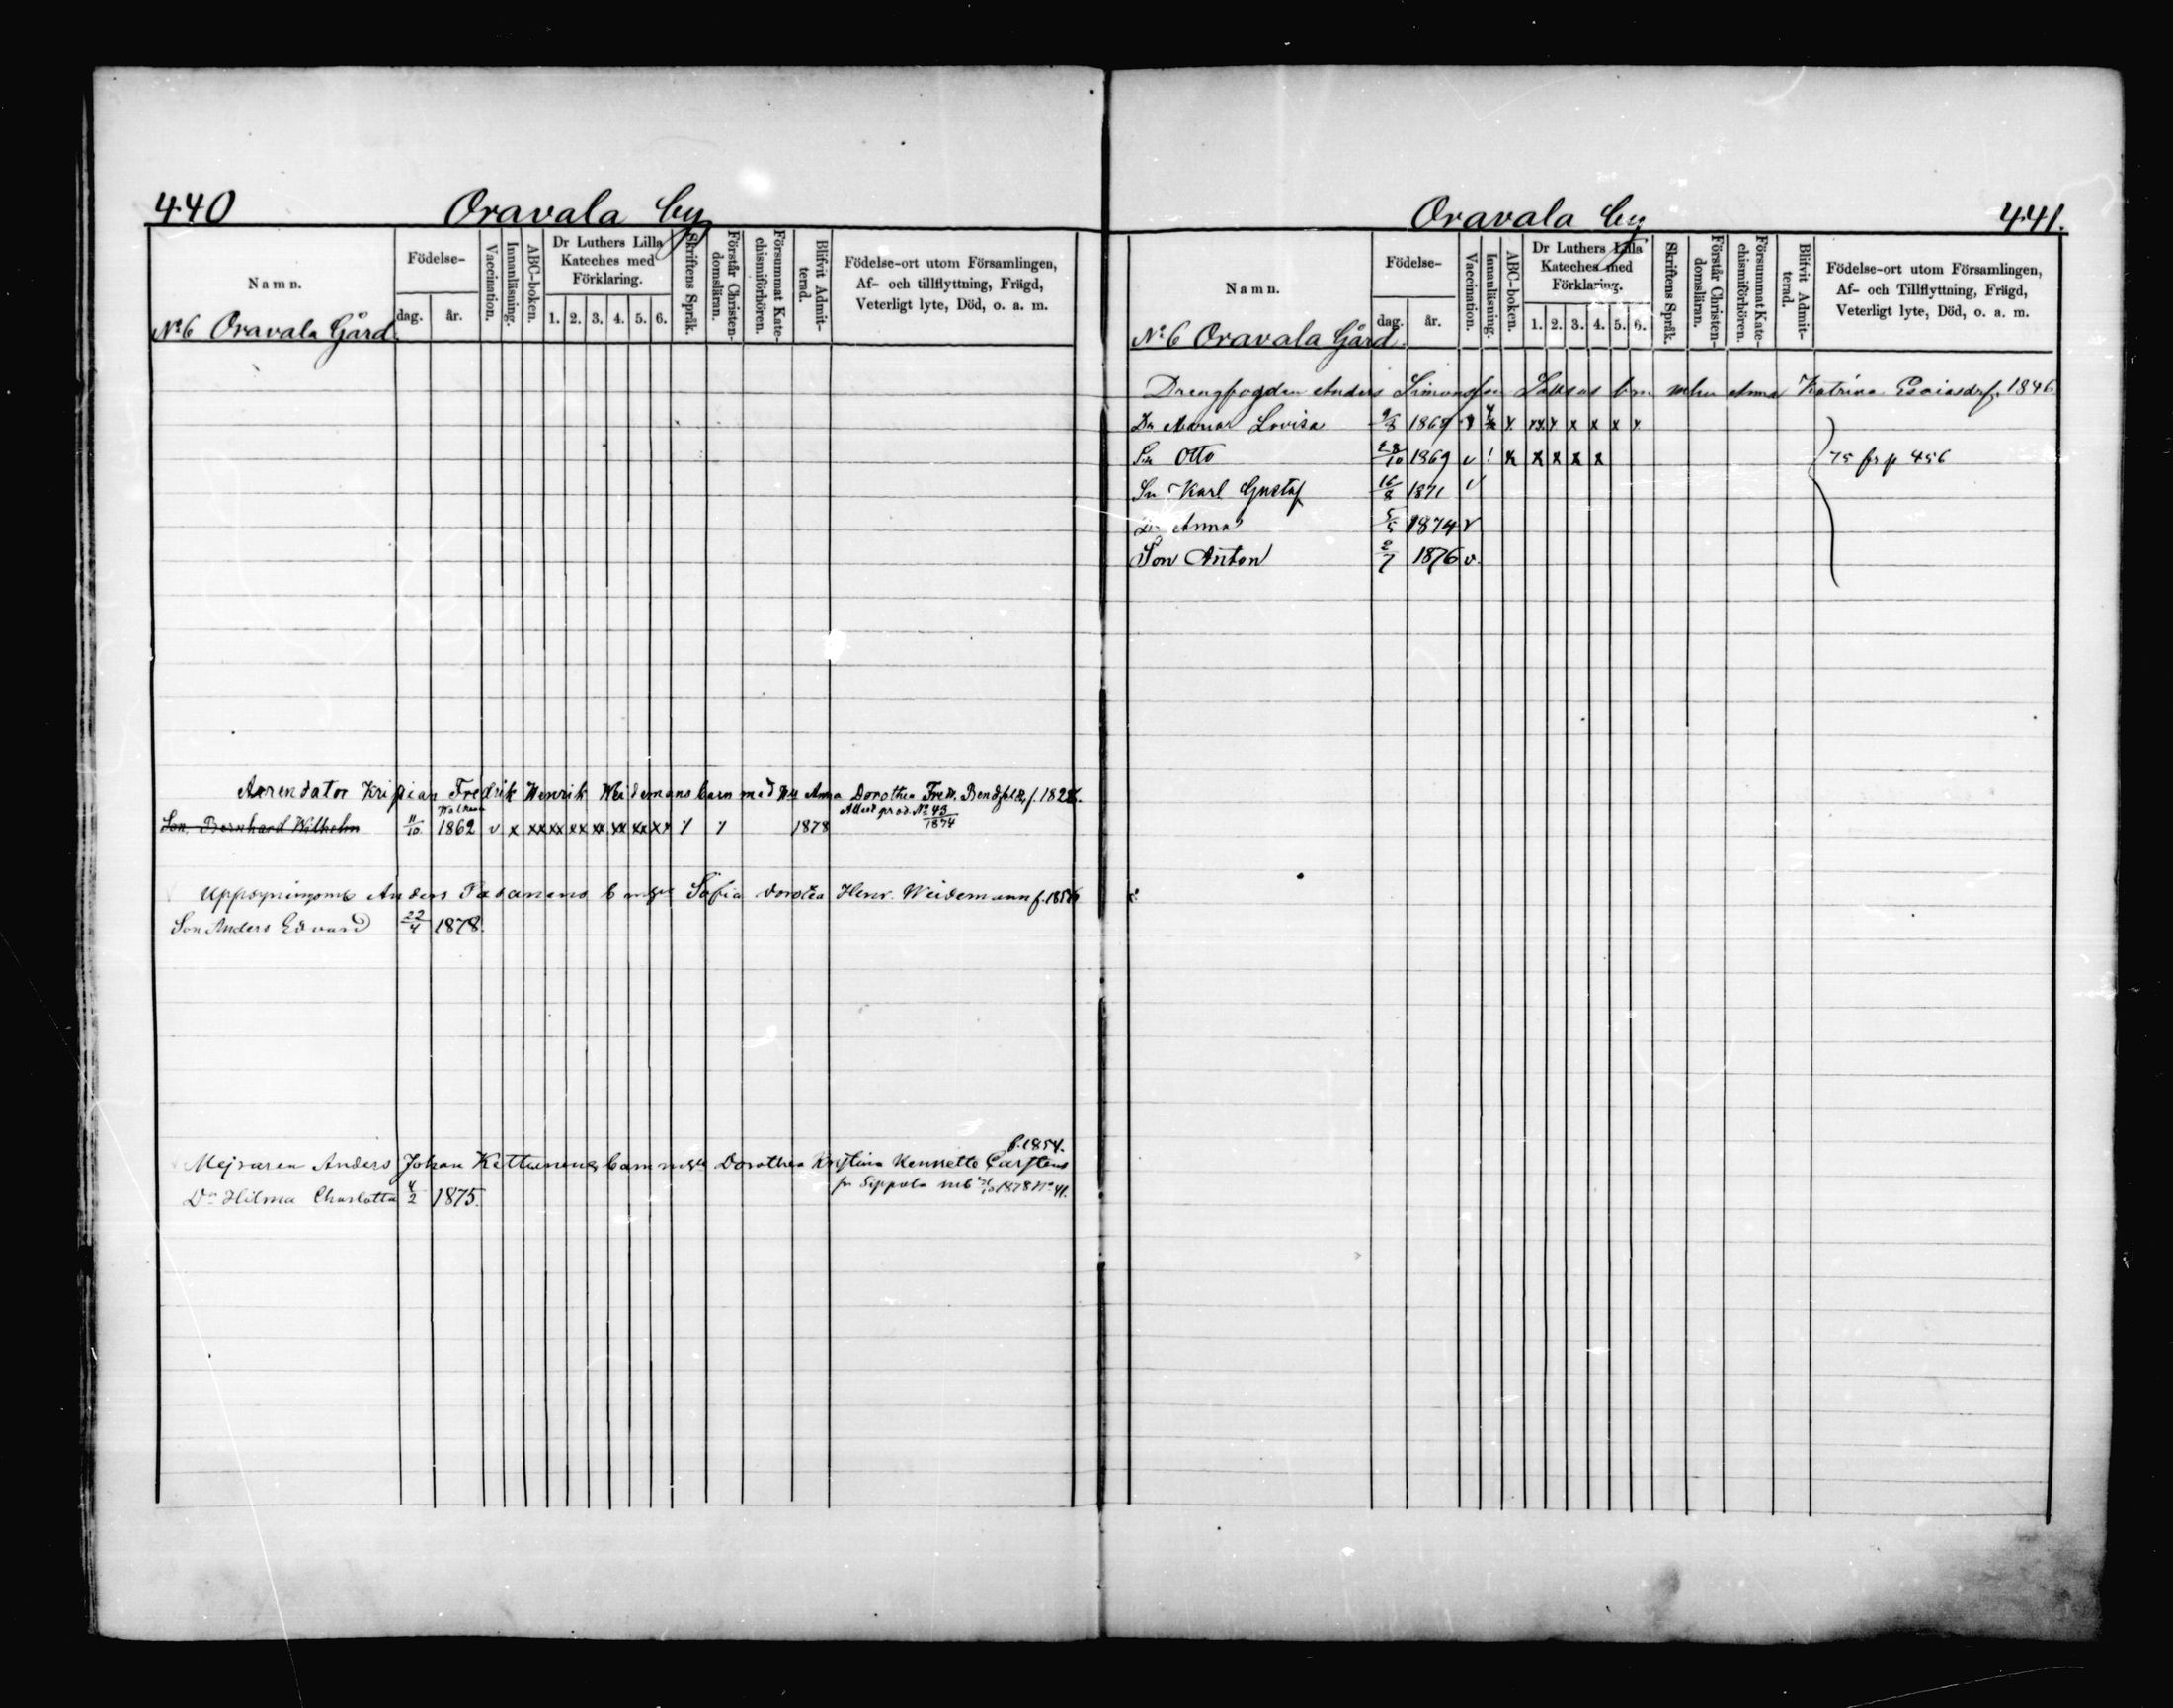 440
Oravala by
Namn.
Födelse-
dag.
år.
Vaccination.
Innanläsning.
ABC-boken.
Dr Luthers Lilla
Kateches med
Förklaring.
1. 2. 3. 4. 5. 6.
Skriftens Språk.
Förstår Christen-
domsläran.
Försummat Kate-
chismiförhören.
Blifvit Admit-
terad.
Födelse-ort utom Församlingen,
Af- och tillflyttning, Frägd,
Veterligt lyte, Död, o. a. m.
No 6 Oravala Gård.
Arrendator Kristian Fredrik Henrik Weidemans barn med Anna Dorothea Fredr. f. 1828.
Son, Bernhard Wilhelm 11/10 1862 v x xx xx xx xx xx xx xx 1878 Attest prod. No 43/1874
Anders Pasanens Sofia Dorotea Henr. Weidemann f. 1856
Son Anders Edvard 22/4 1878.
f. 1854.
Mejraren Anders Johan Kettunens barn Dorothea Kristina Hennette Carstens
Dr Hilma Charlotta 4/2 1875. fr Sippola 1878 No 41.
Oravala by
441.
Namn.
Födelse-
dag.
år.
Vaccination.
Innanläsning.
ABC-boken.
Dr Luthers Lilla
Kateches med
Förklaring.
1. 2. 3. 4. 5. 6.
Skriftens Språk.
Förstår Christen-
domsläran.
Försummat Kate-
chismiförhören.
Blifvit Admit-
terad.
Födelse-ort utom Församlingen,
Af- och Tillflyttning, Frägd,
Veterligt lyte, Död, o. a. m.
No 6 Oravala Gård.
Drengfogden Anders Simonsson bm mhu Anna Katrina Esaiasdr f. 1846
Dr Maria Lovisa 1867
Sn Otto 28/10 1869 v ! x x x x x 75 fr p 456
Sn Karl Gustaf 16/8 1871 v
Dr Anna 5/5 1874 v
Son Anton 2/7 1876 v.